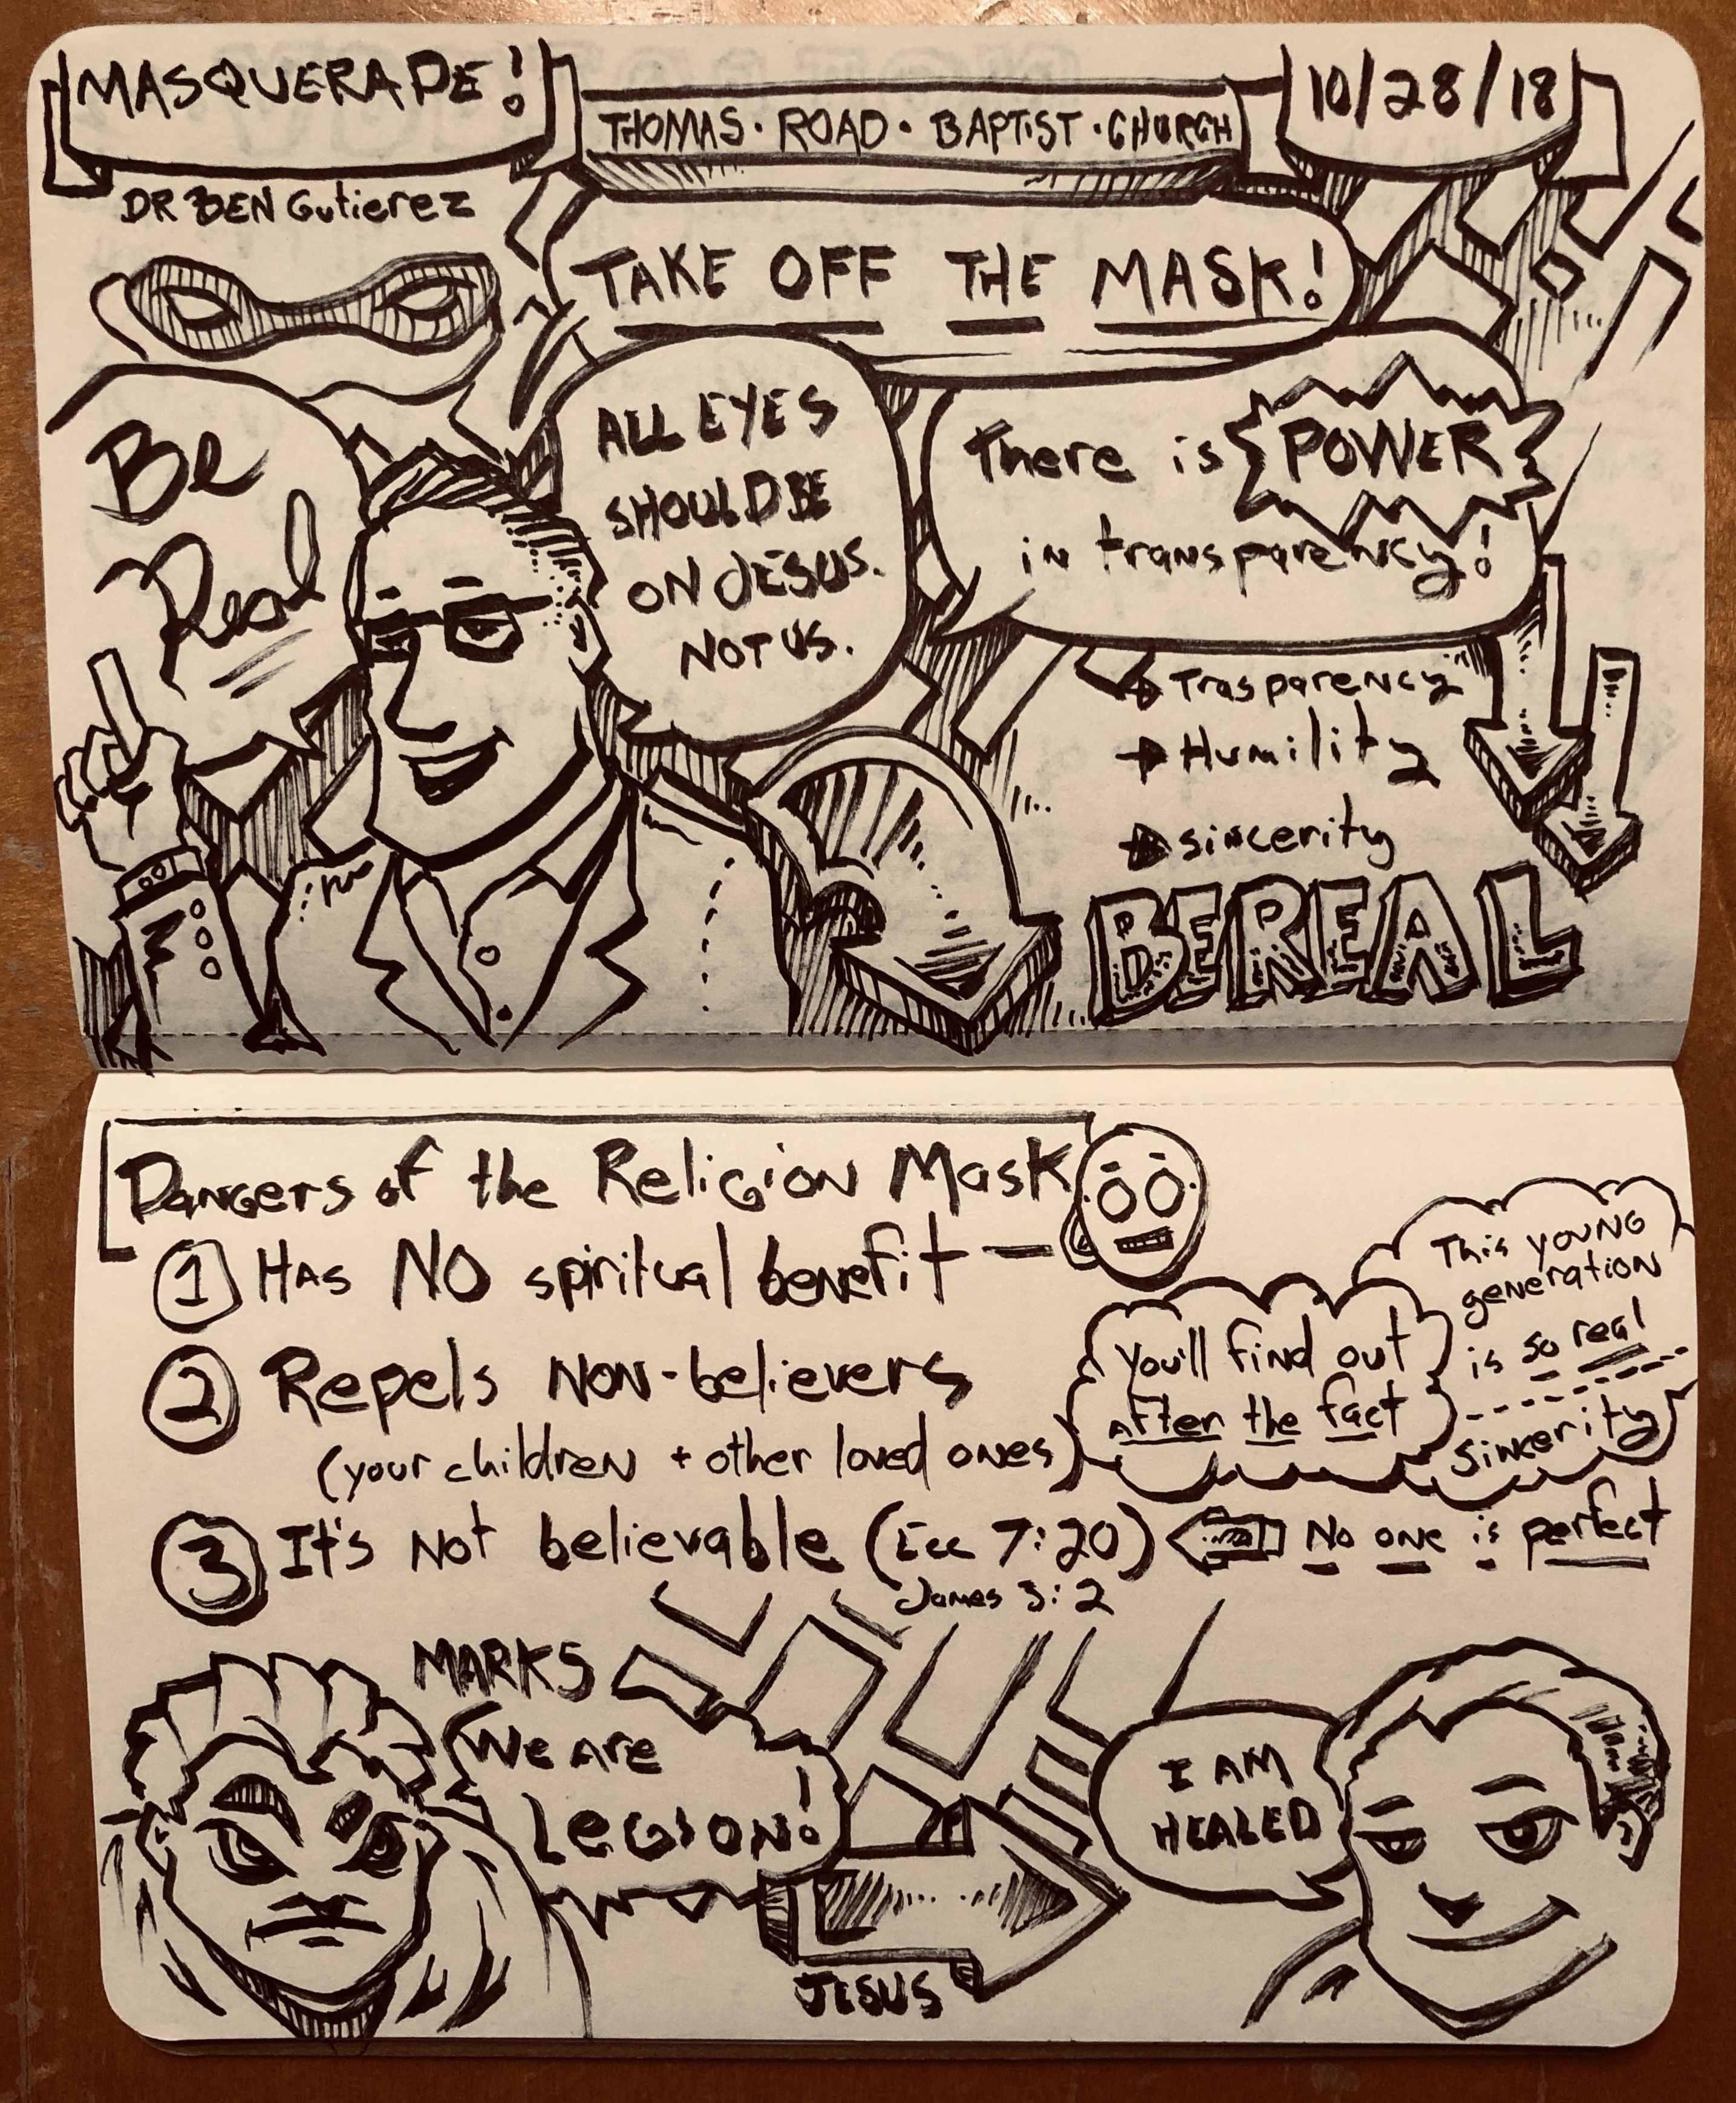 MASQUERADE!
THOMAS · ROAD · BAPTIST · CHURCH
10/28/18
DR BEN Gutierez
TAKE OFF THE MASK!
Be
Real
ALL EYES
SHOULD BE
ON JESUS.
NOT US.
There is POWER
in transparency!
Trasparency
Humility
sincerity
BE REAL
Dangers of the Religion Mask
1 Has NO spiritual benefit
2 Repels NON-believers
(your children + other loved ones)
You'll find out
after the fact
This young
generation
is so real
Sinkerity
3 It's Not believable (Ecc 7:20) No one is perfect
James 3:2
MARK 5
We are
LEGION!
JESUS
I AM
HEALED